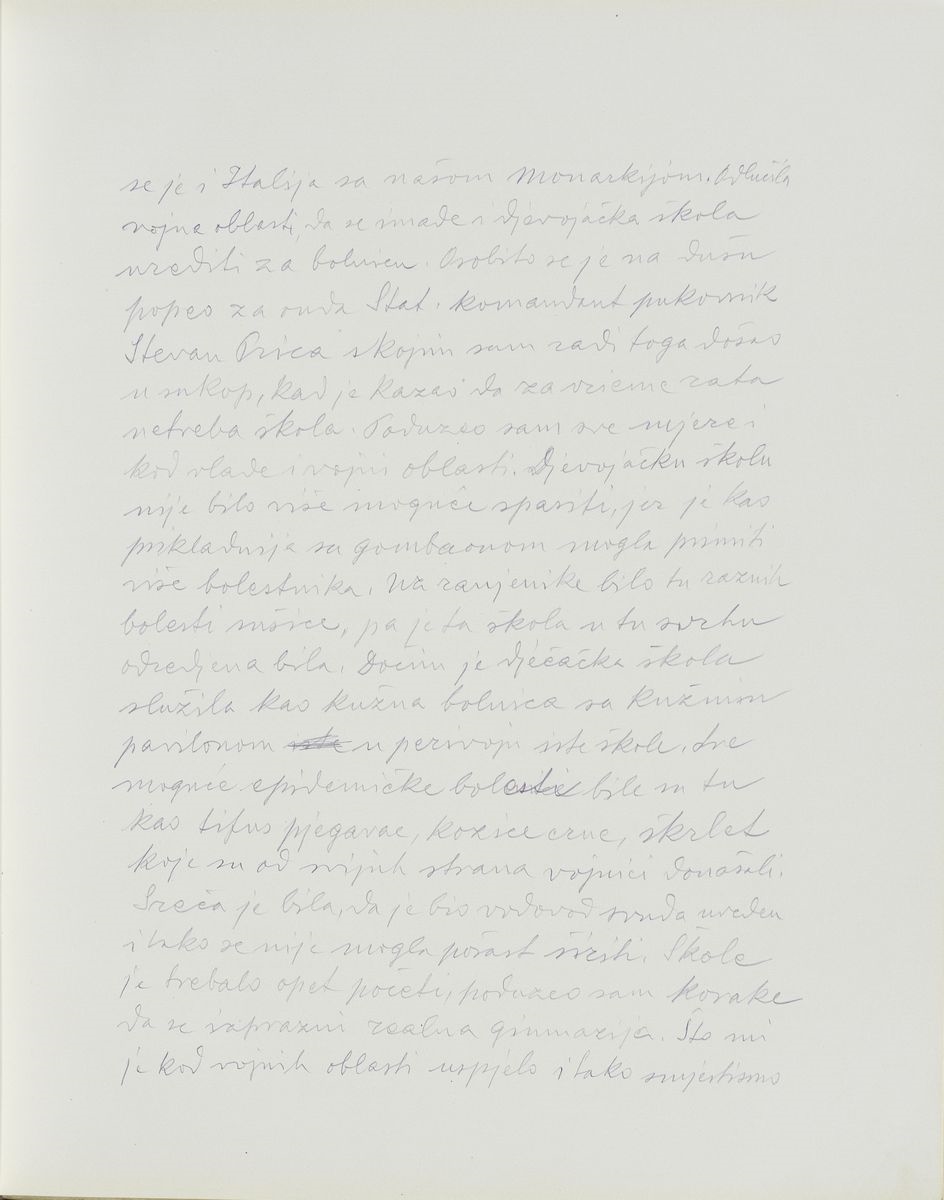 se je i Italija sa našom Monarkijom. Odlučila
vojna oblasti, da se imade i djevojačka škola
urediti za bolnicu. Osobito se je na dušu
popeo za onda Stat. komandant pukovnik
Stevan Prica s kojim sam radi toga došao
u sukop, kad je kazao da za vrieme rata
netreba škola. Poduzeo sam sve mjere i
kod vlade i vojni oblasti. Djevojačku školu
nije bilo više moguće spasiti, jer je kao
prikladnija sa gombaonom mogla primiti
više bolestnika. Uz ranjenike bilo tu raznih
bolesti sušice, pa je ta škola u tu svrhu
odredjena bila. Dočim je dječačka škola
služila kao kužna bolnica sa kužnim
pavilonom u perivoju iste škole. Sve
moguće epidemičke bolesti bile su tu
kao tifus pjegavac, kozice crne, škrlet
koje su od svijuh strana vojnici donašali.
Sreća je bila, da je bio vodovod svuda uveden
i tako se nije mogla pošast širiti. Škole
je trebalo opet početi, poduzeo sam korake
da se izprazni realna gimnazija. Što mi
je kod vojnih oblasti uspjelo i tako smjestismo